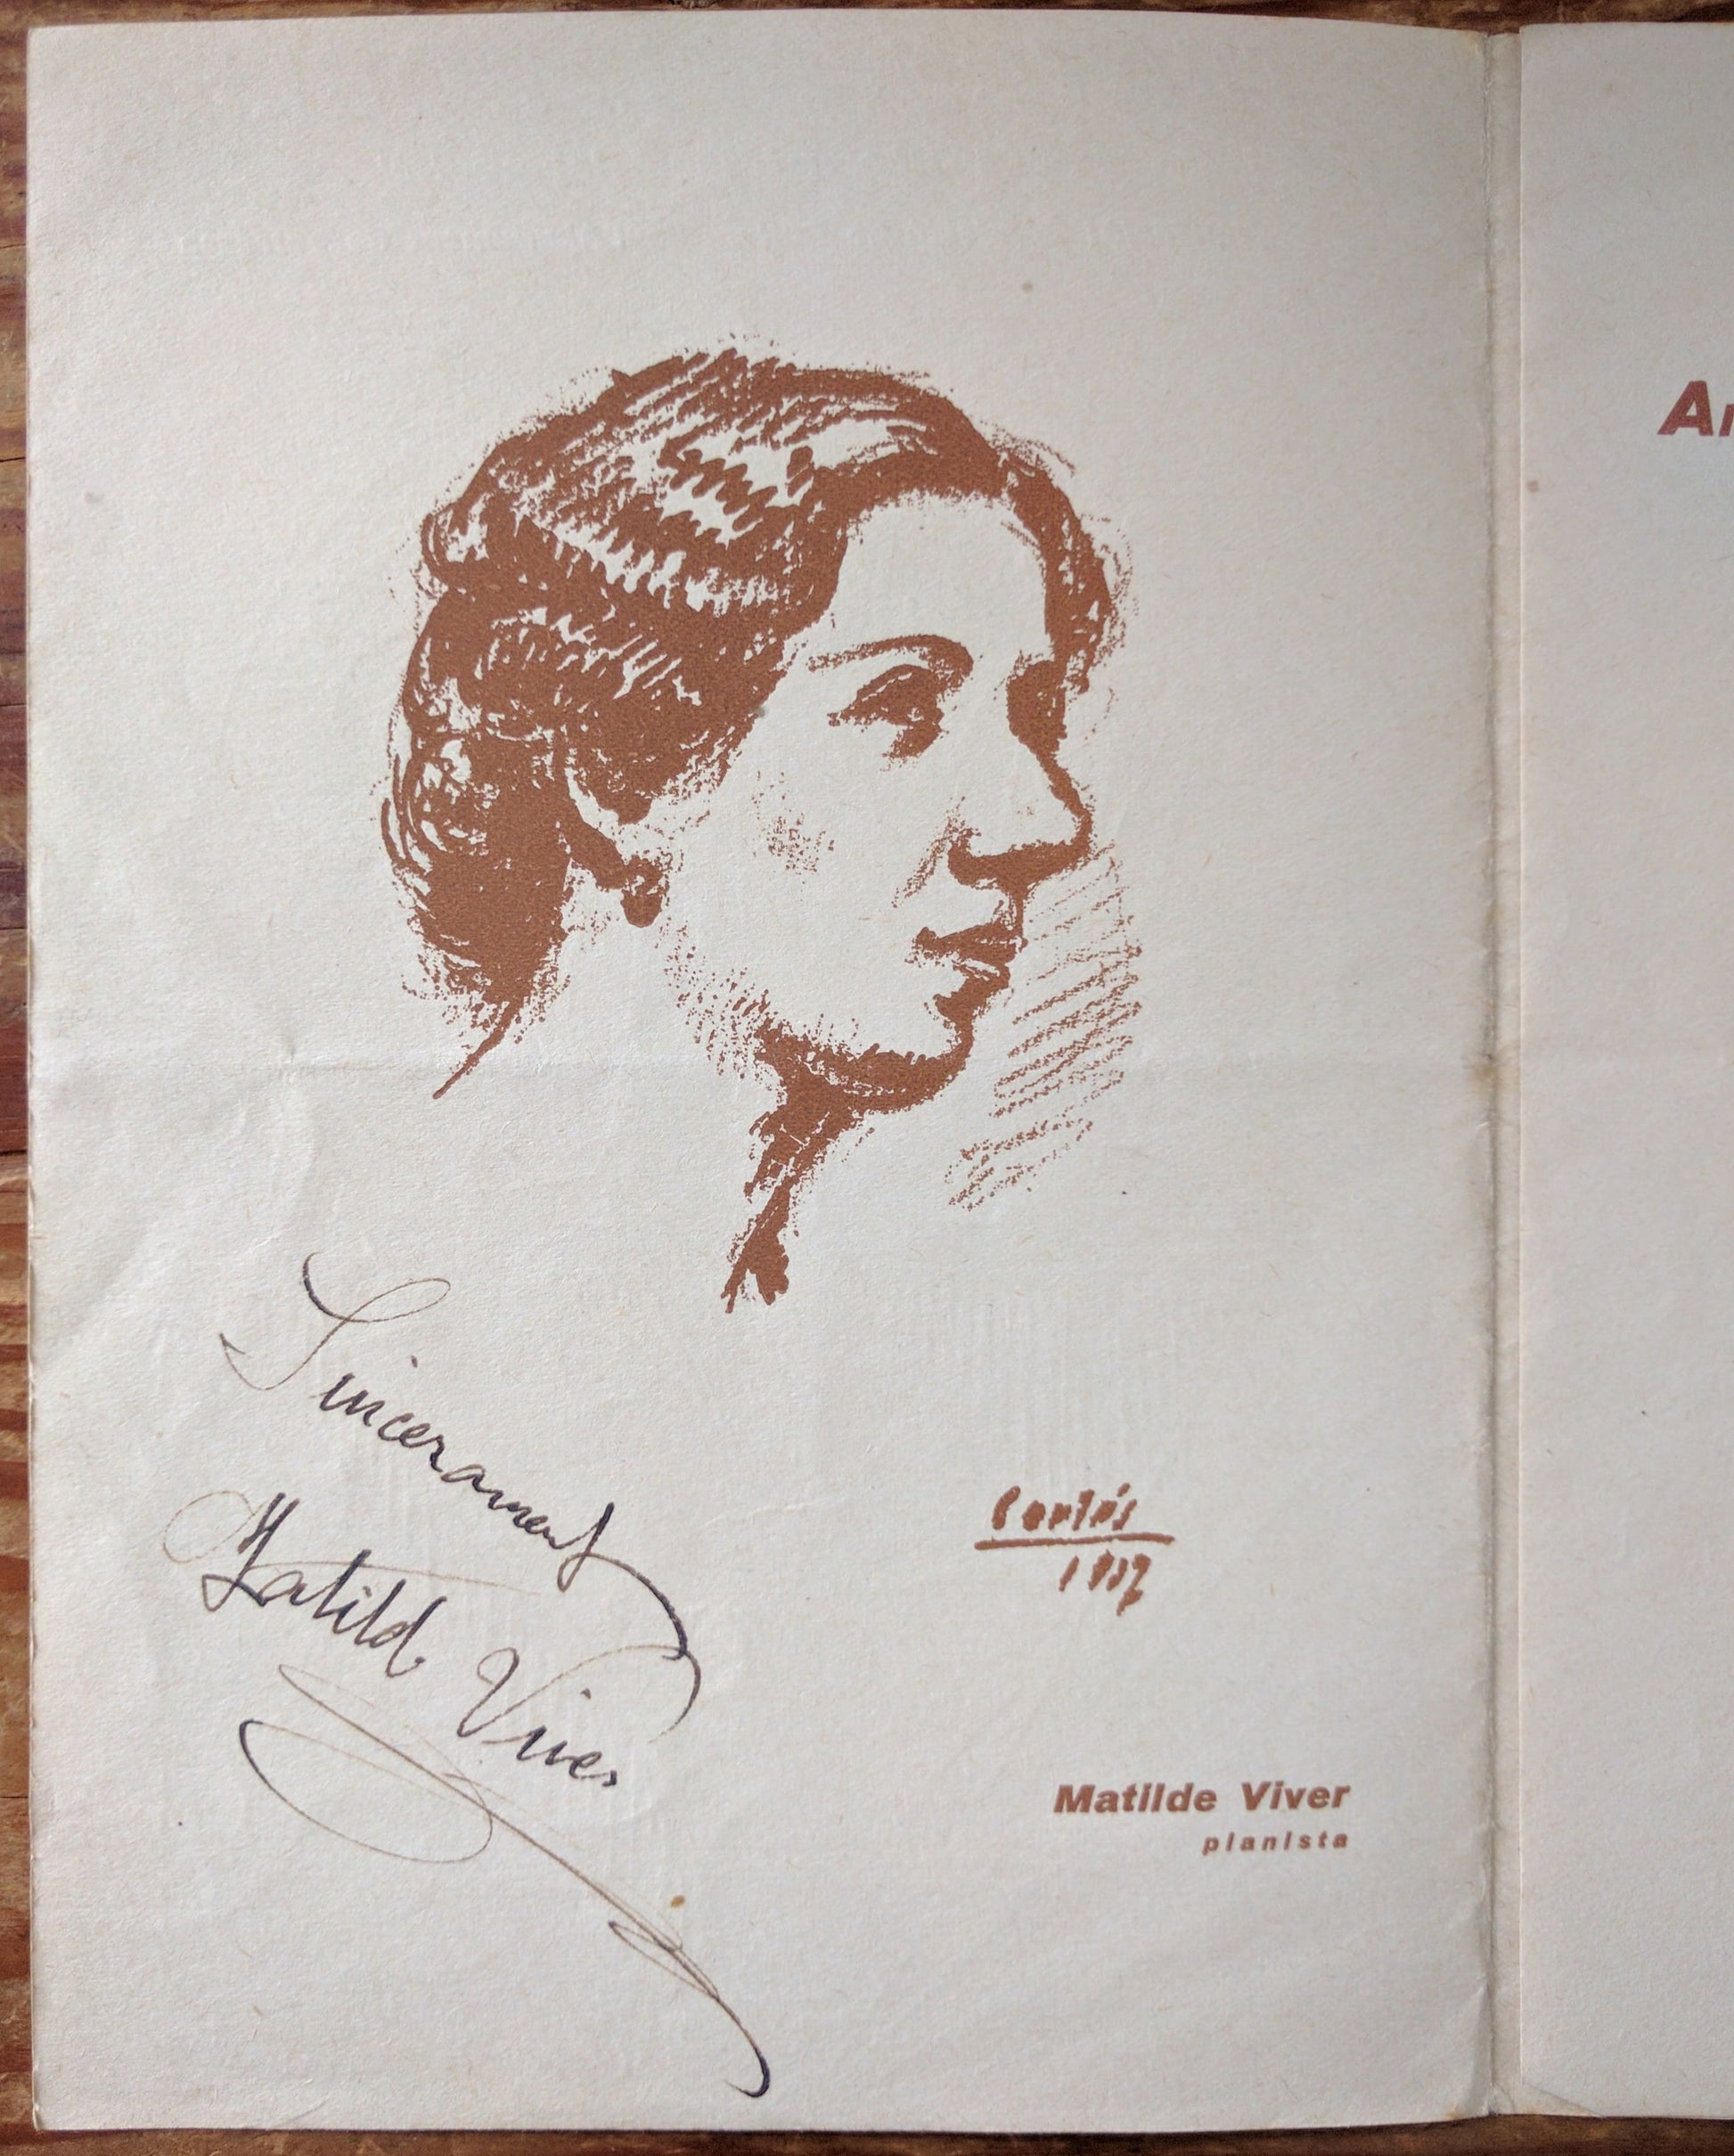 Sincerament
Matilde Viver
1937
Matilde Viver
pianista